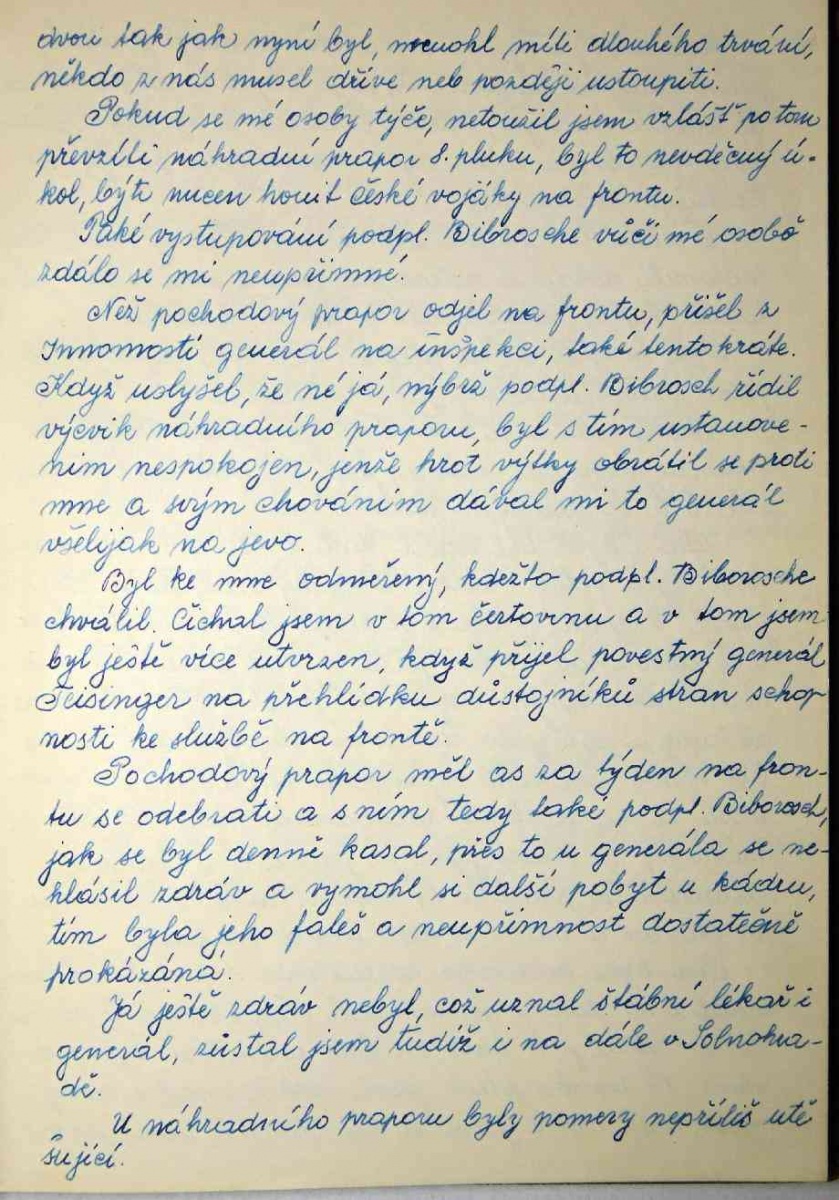 dvou tak jak nyní byl, nemohl míti dlouhého trvání,
někdo z nás musel dříve neb později ustoupiti.
Pokud se mé osoby týče, netoužil jsem vzlášť po tom
převzíti náhradní prapor 8. pluku, byl to nevděčný ú-
kol, býti nucen honit české vojáky na frontu.
Také vystupování podpl. Bibrosche vůči mé osobě
zdálo se mi neupřímné.
Než pochodový prapor odjel na frontu, přišel z
Innomostí generál na inšpekci, také tentokráte.
Když uslyšel, že né já, nýbrž podpl. Bibrosch řídil
výcvik náhradního praporu, byl s tím ustanove-
ním nespokojen, jenže hrot výtky obrátil se proti
mne a svým chováním dával mi to generál
všelijak na jevo.
Byl ke mne odměřený, kdežto podpl. Biborosche
chválil. Čichal jsem v tom čertovinu a v tom jsem
byl ještě více utvrzen, když přijel povestný generál
Teisinger na přehlídku důstojníků stran schop
nosti ke službě na frontě.
Pochodový prapor měl as za týden na fron-
tu se odebrati a s ním tedy také podpl. Biborosch,
jak se byl denně kasal, přes to u generála se ne-
hlásil zdráv a vymohl si další pobyt u kádru,
tím byla jeho faleš a neupřímnost dostatečně
prokázáná.
Já ještě zdráv nebyl, což uznal štábní lékař i
generál, zůstal jsem tudíž i na dále v Solnohra-
dě.
U náhradního praporu byly pomery nepříliš utě
šující.